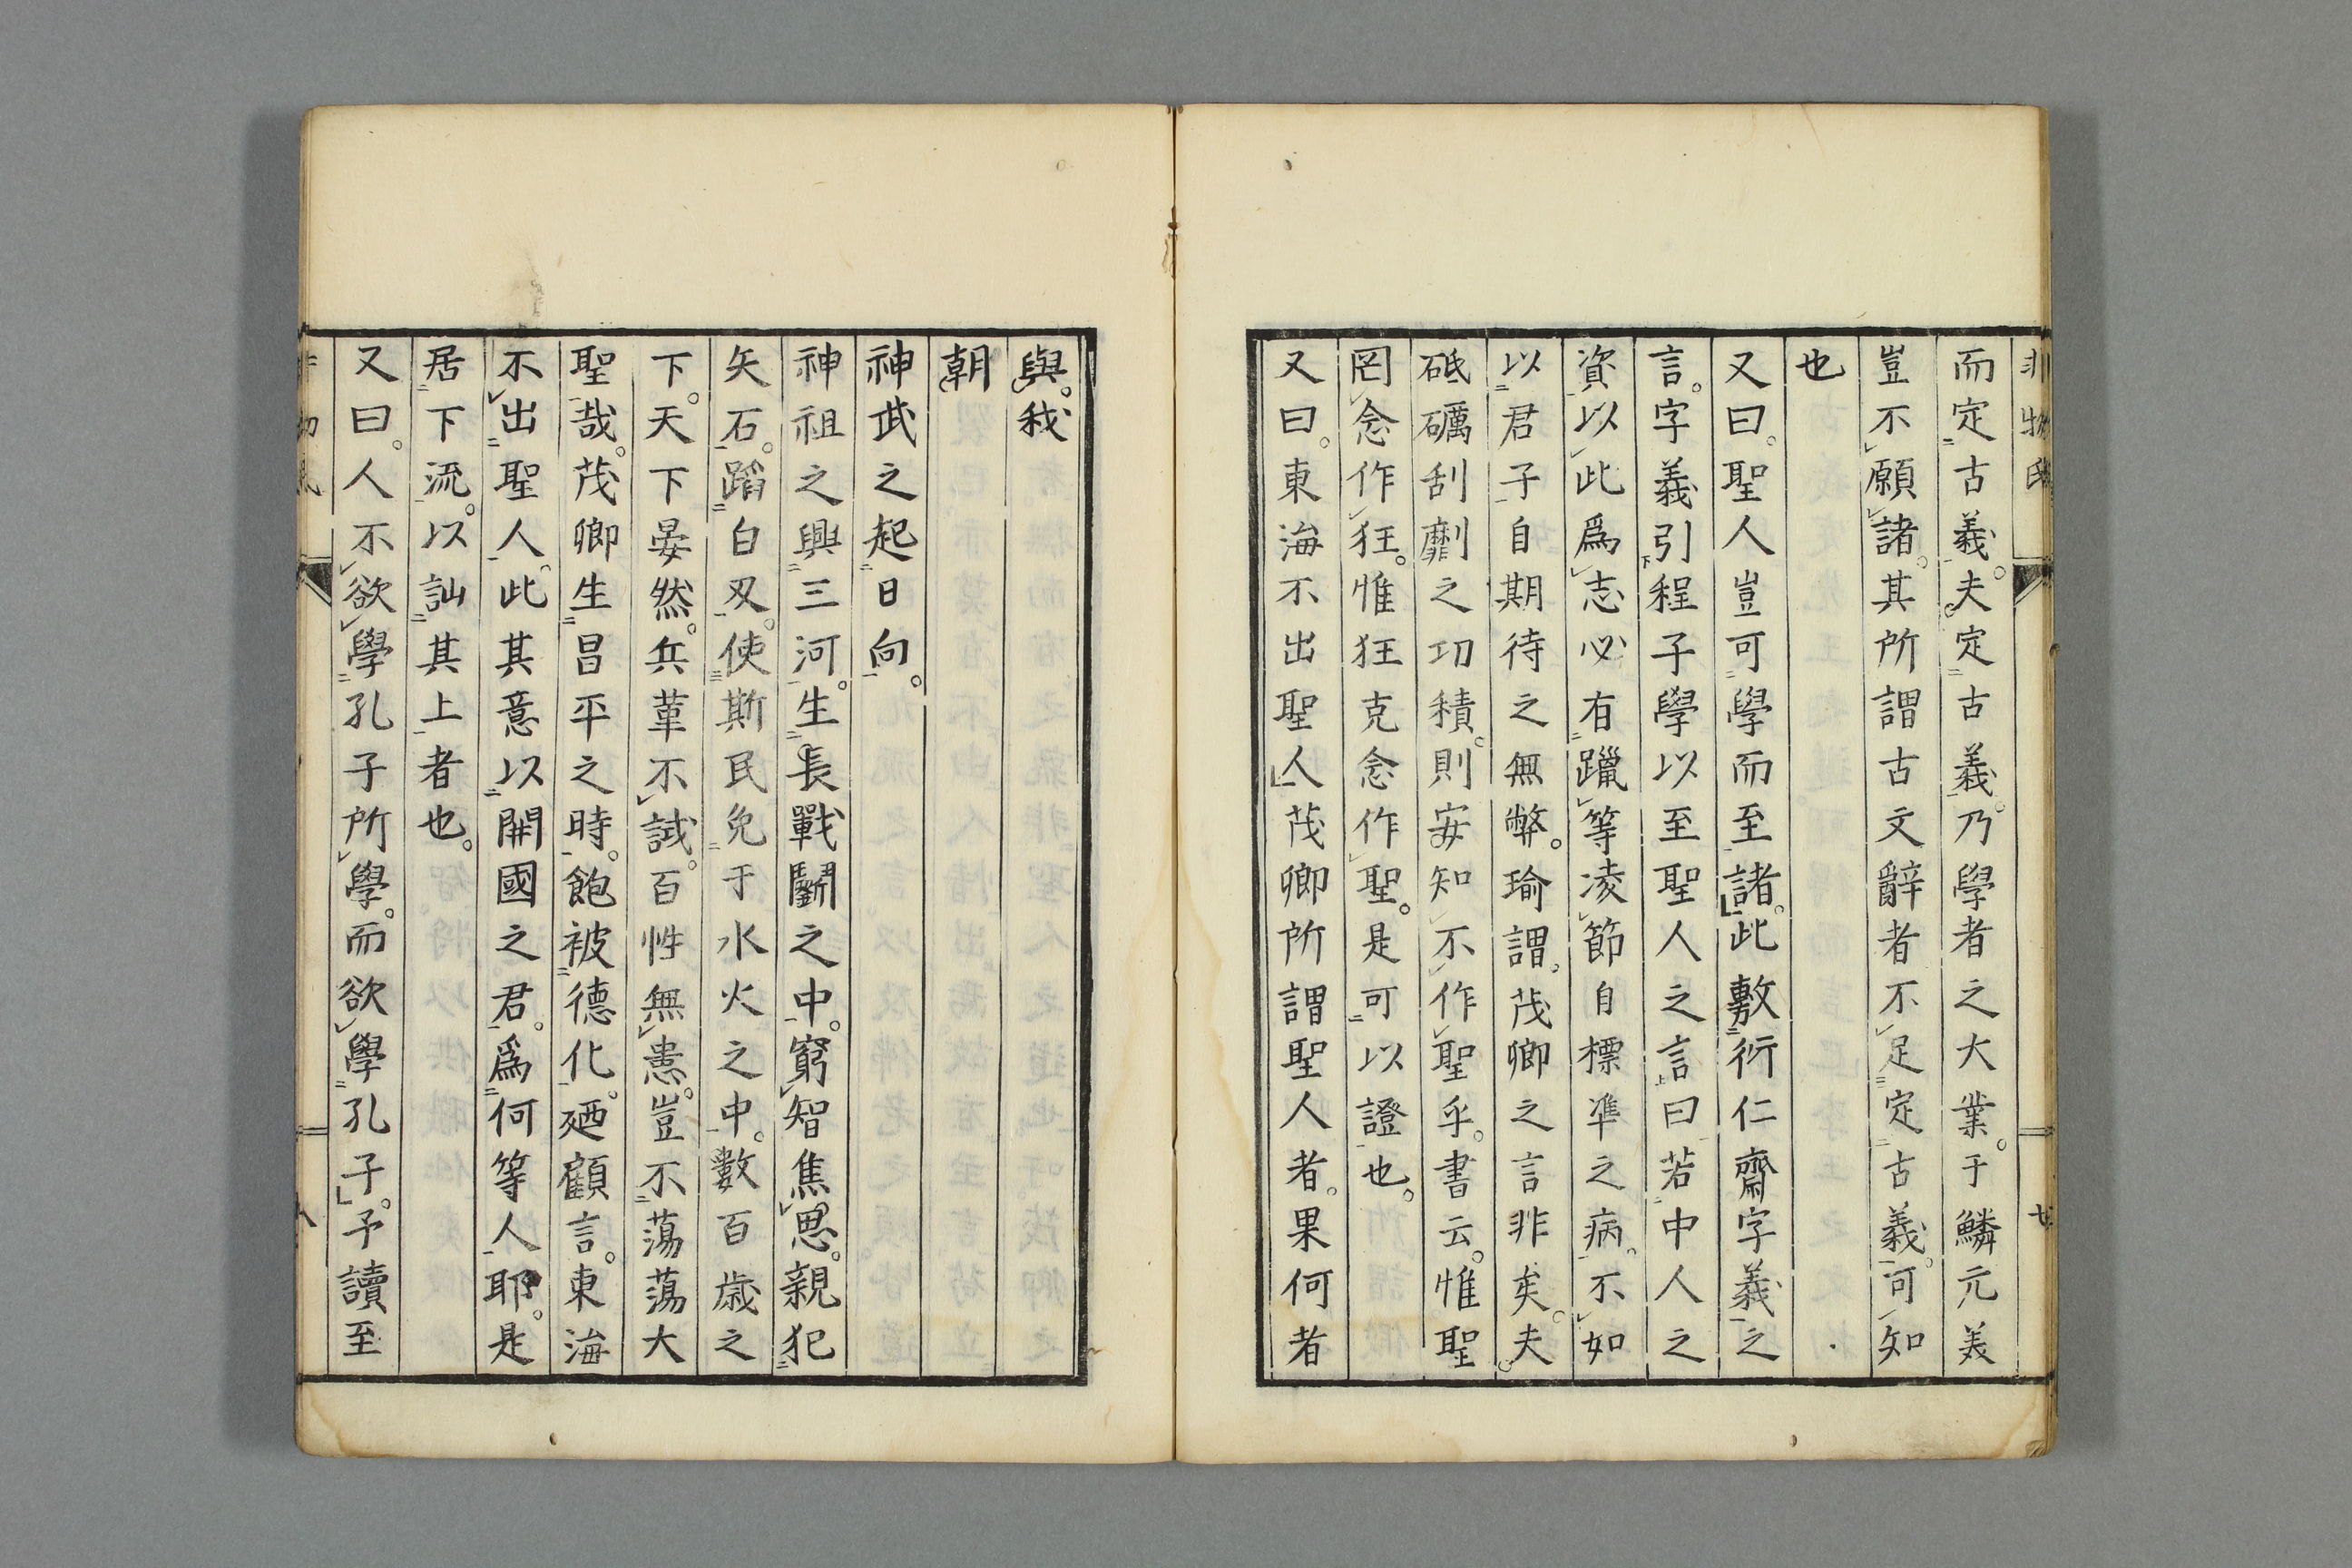 非物氏
而定古義。夫定古義。乃學者之大業。于鱗元美
豈不願諸。其所謂古文辭者不足定古義。可知
也
又曰。聖人豈可學而至諸。此敷衍仁齋字義之
言。字義引程子學以至聖人之言曰若中人之
資以此爲志必有躐等凌節自標準之病。不如
以君子自期待之無弊。瑜謂。茂卿之言非矣。夫
砥礪刮劘之功積。則安知不作聖乎。書云。惟聖
罔念作狂。惟狂克念作聖。是可以證也。
又曰。東海不出聖人茂卿所謂聖人者。果何者
與。我
朝
神武之起日向。
神祖之興三河。生長戰鬭之中。窮智焦思。親犯
矢石。蹈白刄。使斯民免于水火之中。數百歲之
下。天下晏然。兵革不試。百性無恙。豈不蕩蕩大
聖哉。茂卿生昌平之時。飽被德化。廼顧言。東海
不出聖人。此其意以開國之君。爲何等人耶。是
居下流。以訕其上者也。
又曰。人不欲學孔子所學。而欲學孔子。予讀至